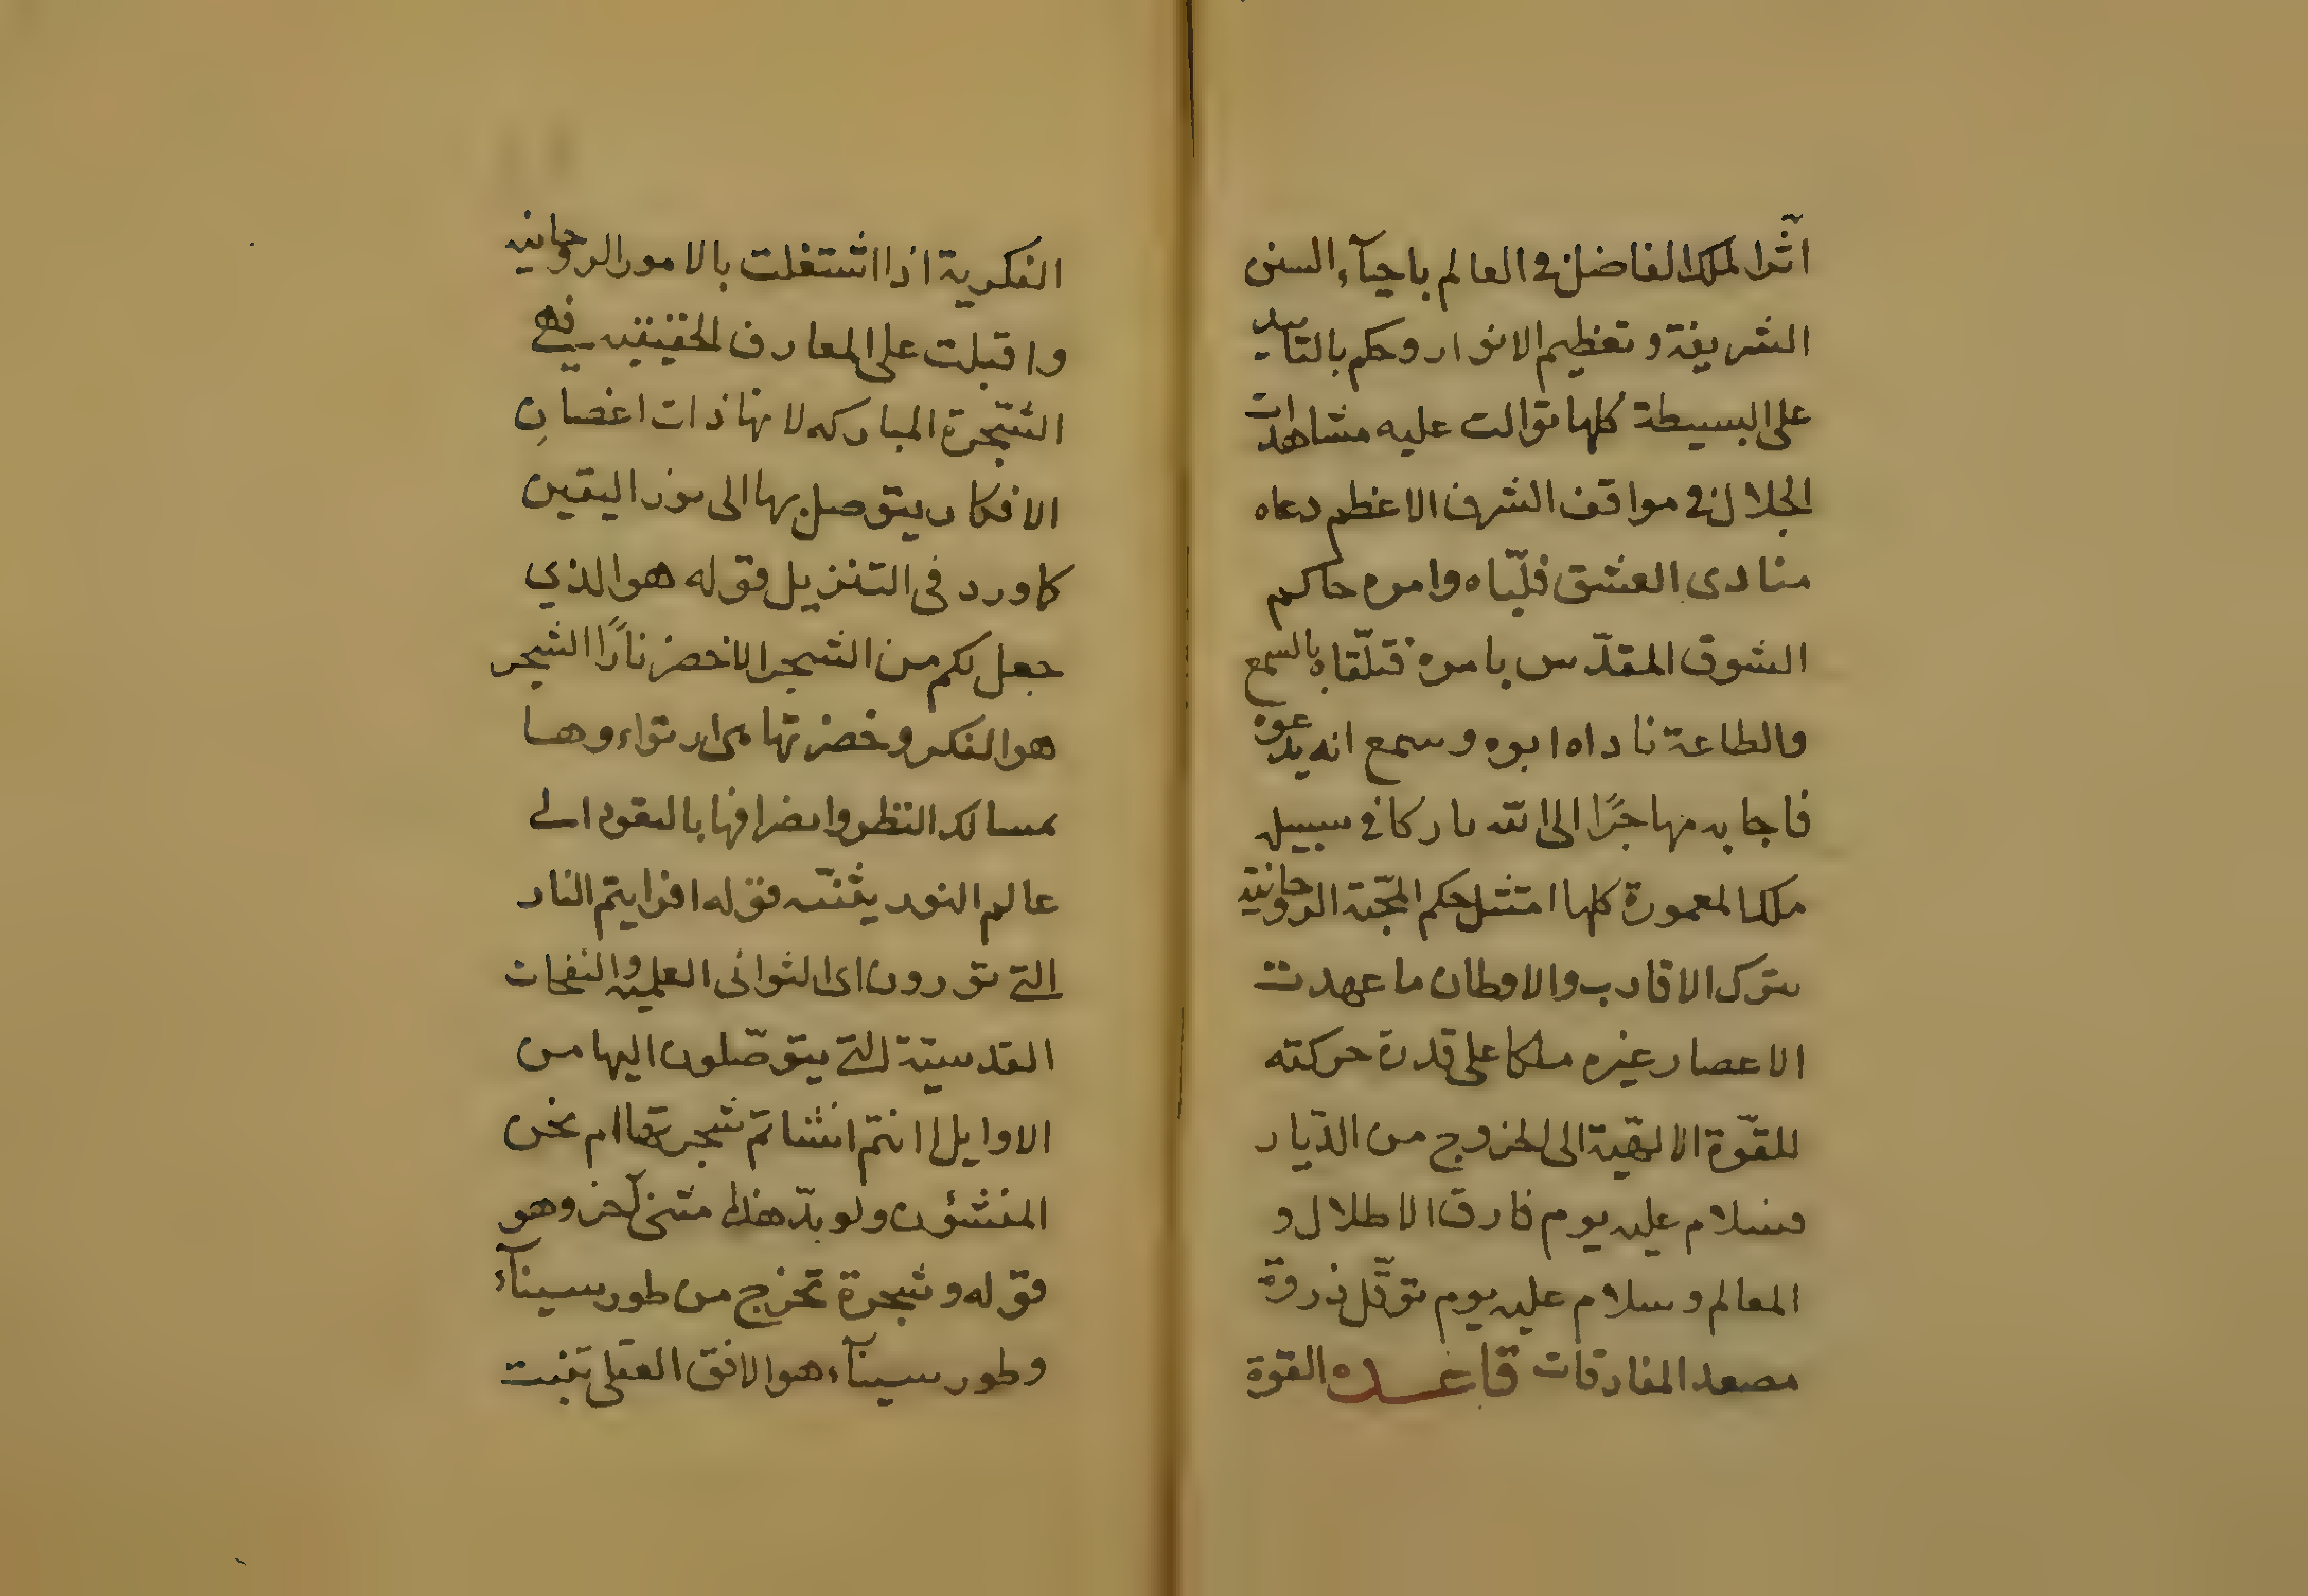 اثّرا لملك الفاضل فى العالم باحيآء السنن
الشريفة وتعظيم الانوار وحكم بالتاييد
على البسيطة كلها توالت عليه مشاهدات
الجلال فى مواقف الشرف الاعظم دعاه
منادى العشق فلبّاه وامره حاكم
الشوق المقدّس بامره فتلقّاه بالسمع
والطاعة ناداه ابوه وسمع انه يدعوه
فاجابه مهاجرًا الى الله تاركا فى سبيله
ملك المعمورة كلها امتثل حكم المحّبة الروحانيّة
بترك الاقارب والاوطان ما عهدت
الاعصار غيره ملكا على قدرة حركته
للقوّة الالهية الى الخروج من الدّيار
فسلام عليه يوم فارق الاطلال و
المعالم وسلام عليه يوم توقّل ذروة
مصعد المفارقات قاعده القوة
الفكرية اذا اشتغلت بالامور الروحانيه
واقبلت على المعارف الحقيقيه فهى
الشّجرة المباركه لانها ذات اغصانِ
الافكار يتوصل بها الى نور اليقين
كما ورد فى التنزيل قوله هو الذي
جعل لكم من الشجر الاخضر نارًا الشجر
هو الفكر وخضرتها ارتواءوها
مسالك النظر وانصرافها بالعود الى
عالم النور يثنّيه قوله افرايتم النار
التى تورون اى الثوانى العلميه والنفحات
القدسيّة التى يتوصّلون اليها من
الاوايل اانتم انشاتم شجرتها ام نحن
المنشؤن ولو بدّ هذا مثنى آخر وهو
قوله وشجرة تخرج من طور سينآء
وطور سينآء هو الافق العقلى تنبت